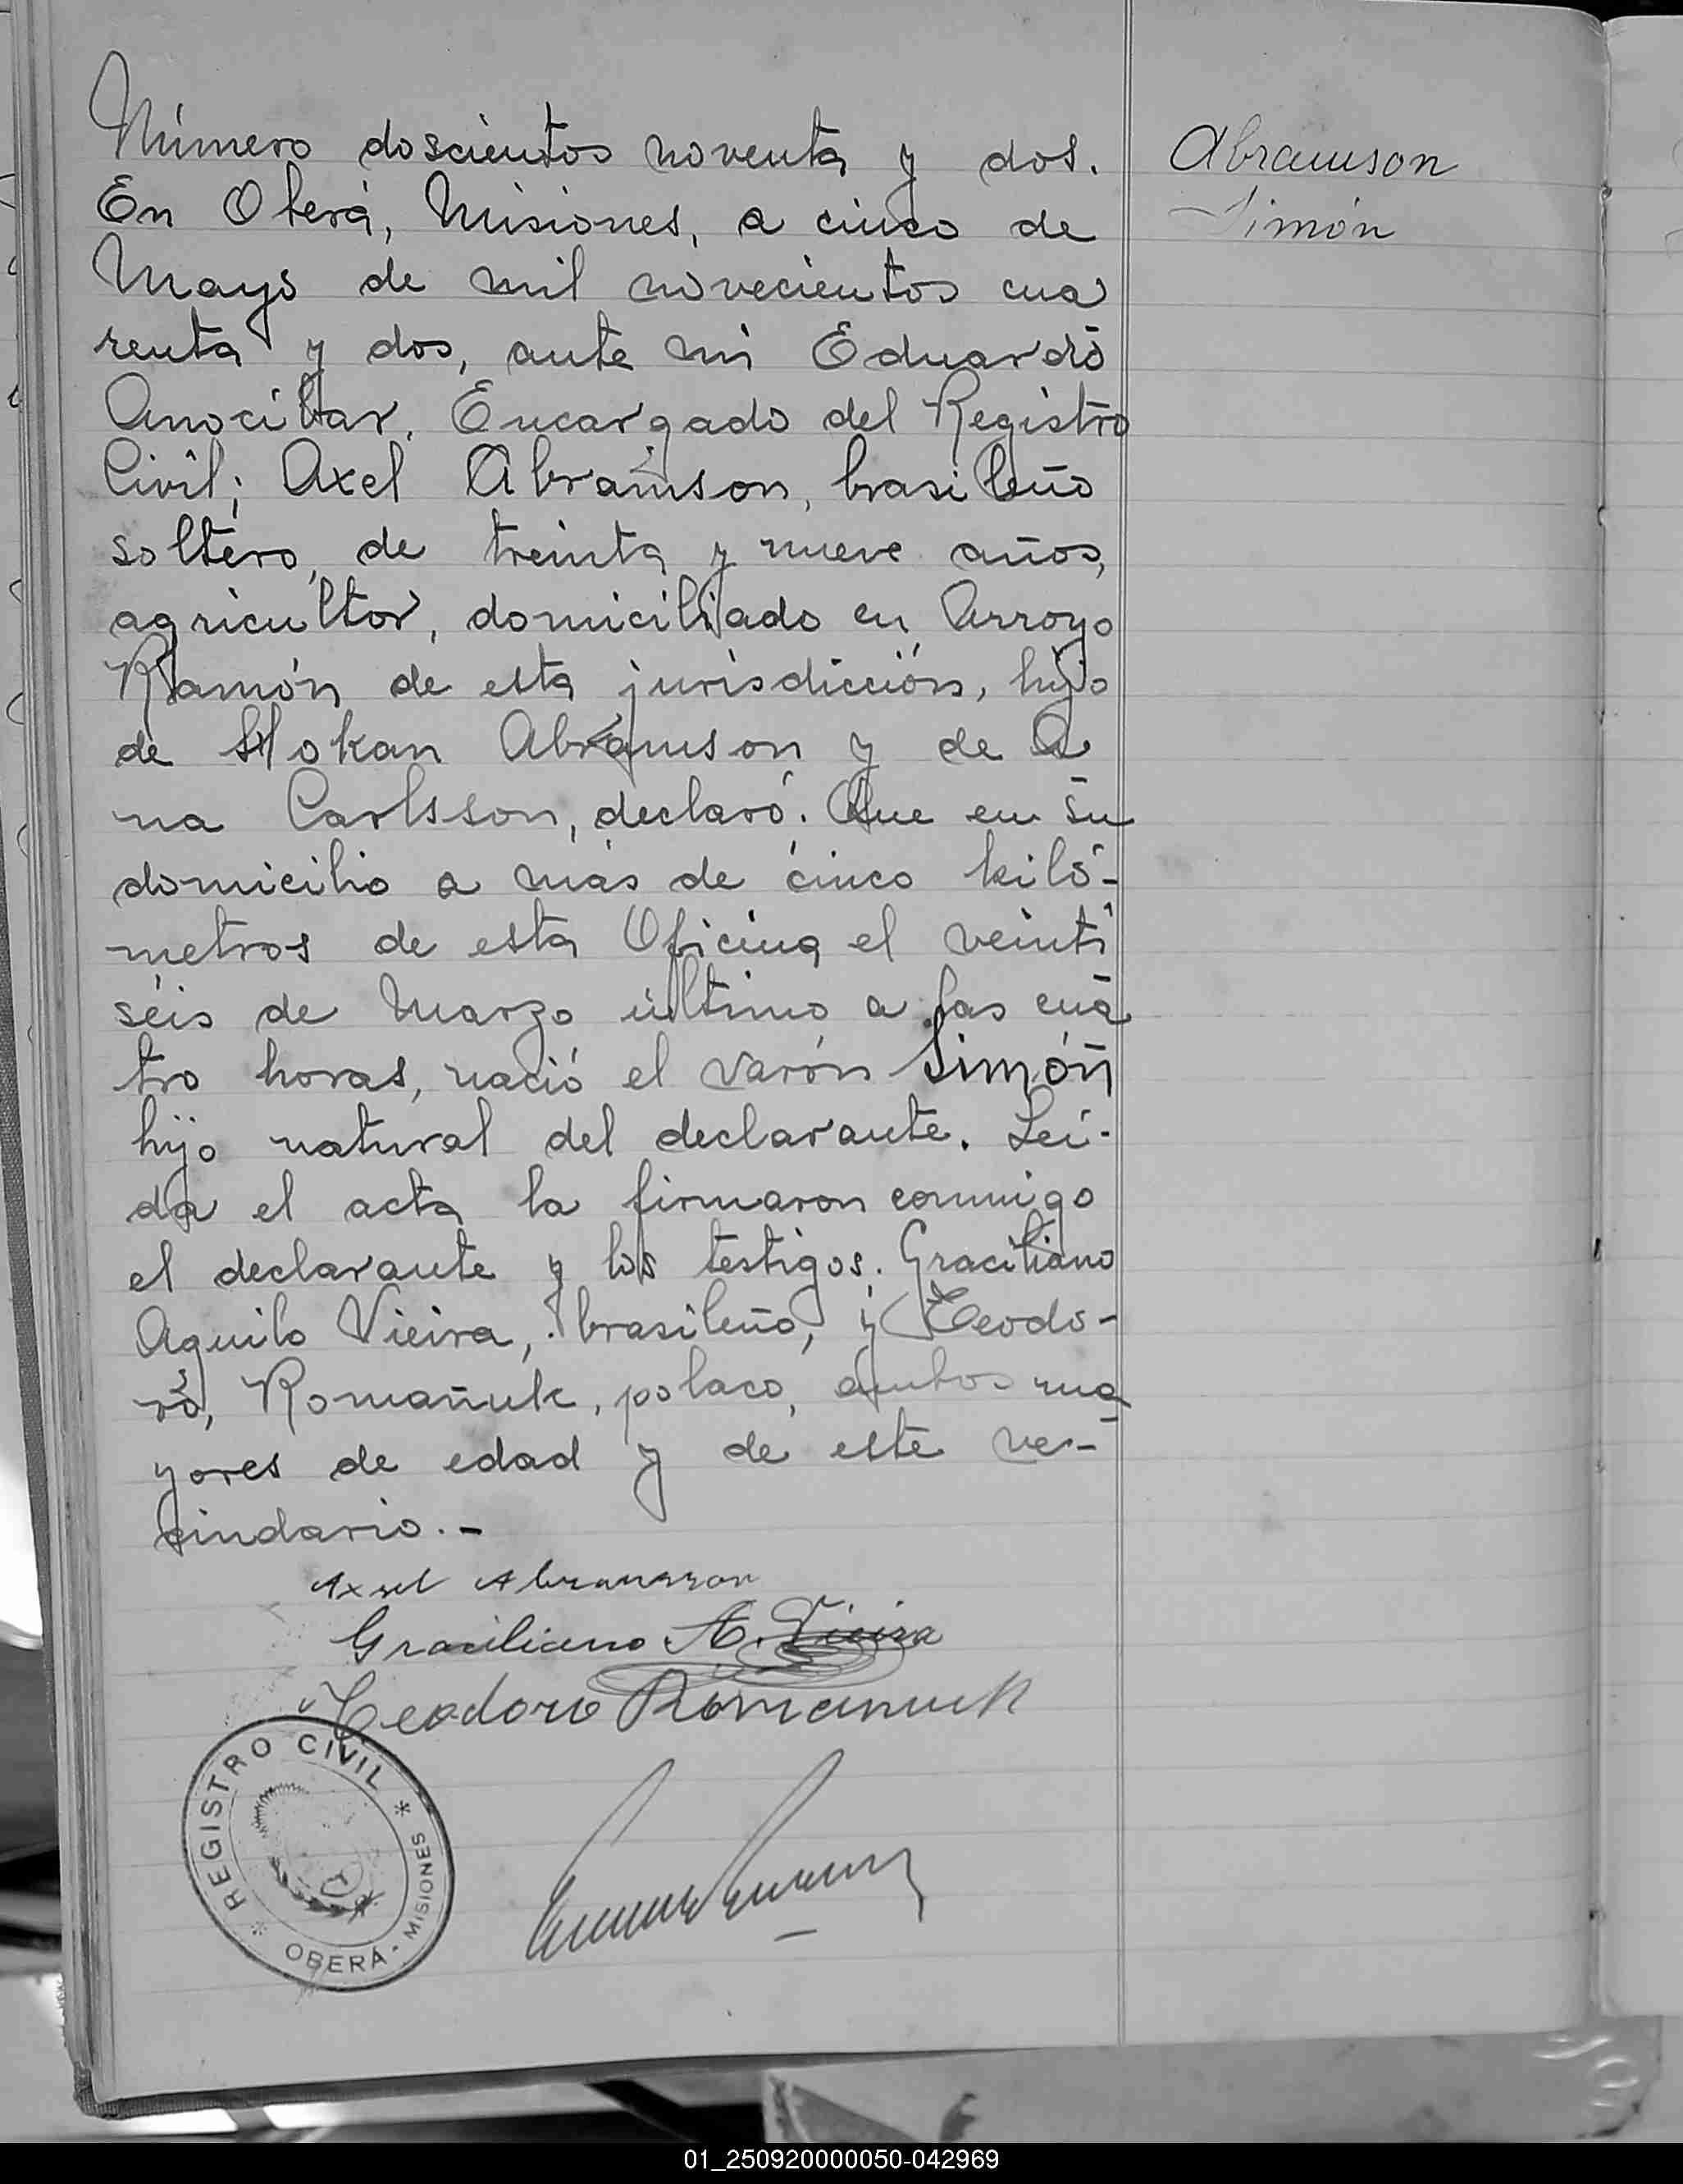 Número doscientos noventa y dos.
En Oberá, Misiones, a cinco de
Mayo de mil novecientos cua
renta y dos, ante mi Eduardo
Anocibar, Encargado del Registro
Civil; Axel Abramson, brasileño
soltero, de treinta y nueve años,
agricultor, domiciliado en Arroyo
Ramón de esta jurisdicción, hijo
de Hokan Abramson y de A
na Carlsson, declaró: Que en su
domicilio a más de cinco kiló-
metros de esta Oficina el veinti
séis de Marzo último a las cua
tro horas, nació el varón Simón
hijo natural del declarante. Leí-
da el acta la firmaron conmigo
el declarante y los testigos: Graciliano
Aquilo Vieira, brasileño, y Teodo-
ro, Romañuk, polaco, ambos ma
yores de edad y de este ve-
cindario.-
Axel Abramson
Graciliano A. Vieira
Teodoro Romanuk
REGISTRO CIVIL
* OBERÁ - MISIONES *
Abramson
Simón
01_250920000050-042969